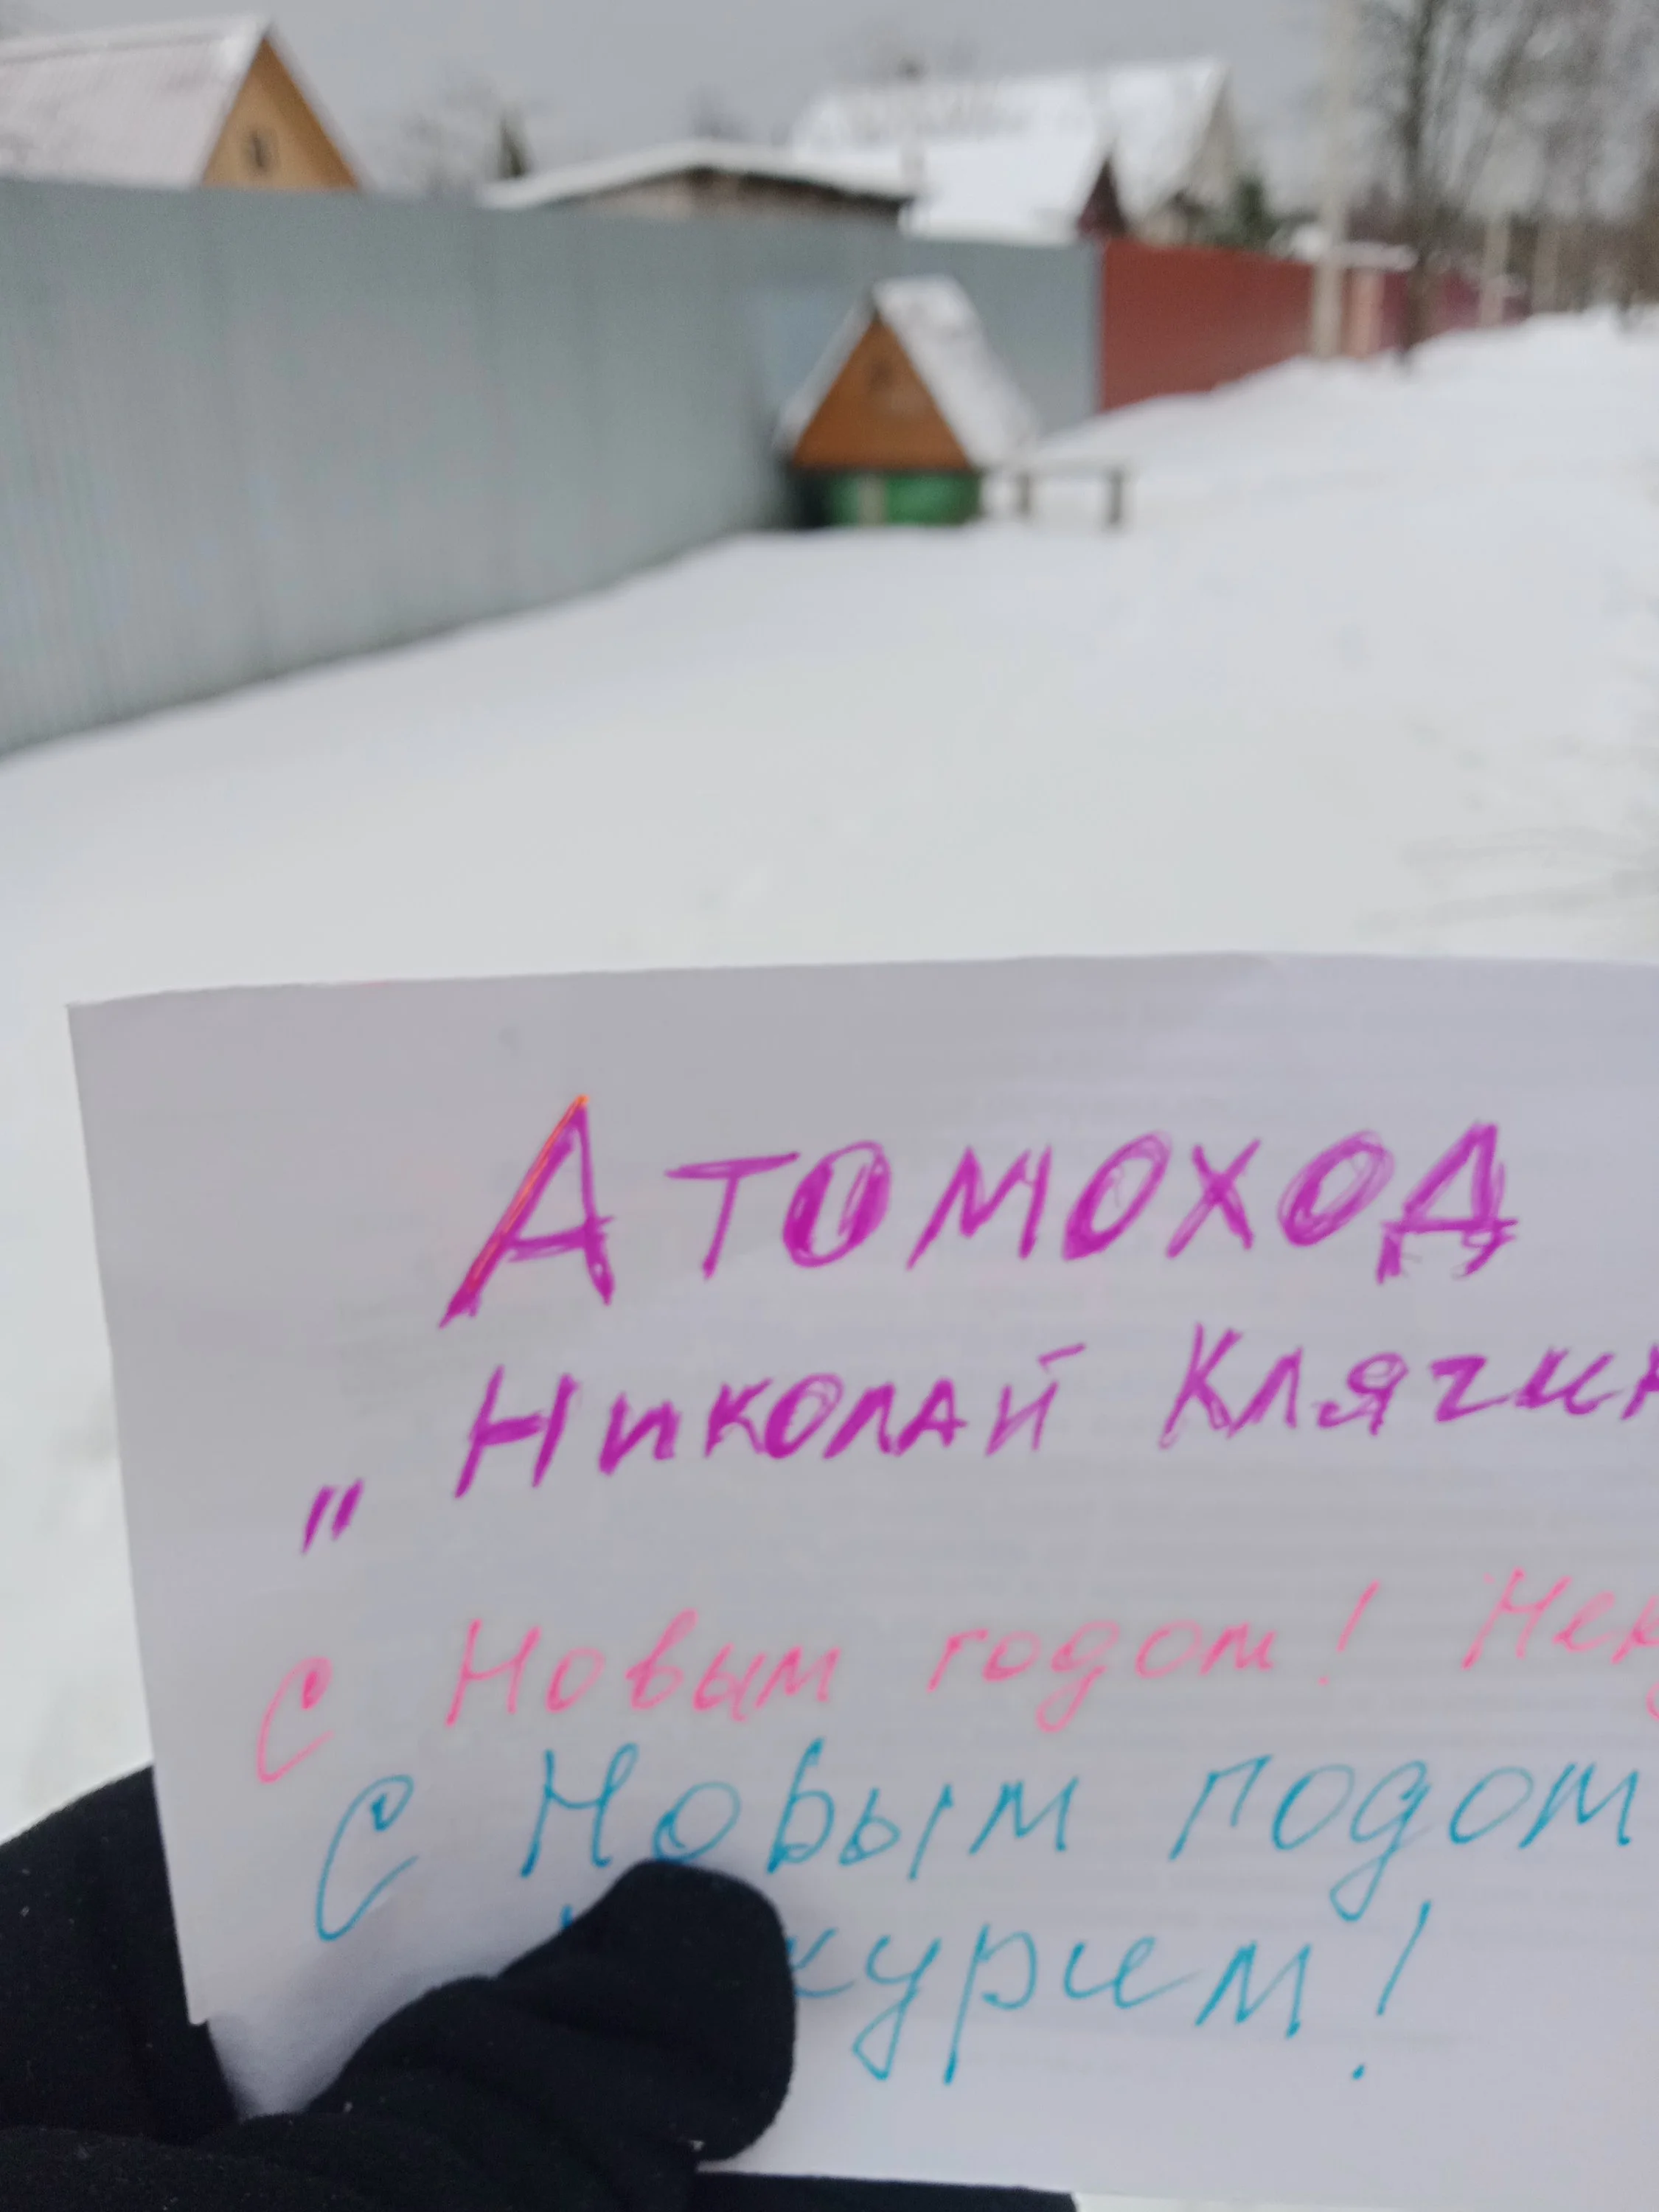 Атомоход
„Николай Клягин
С Новым годом! Нек
С Новым годом
курим!